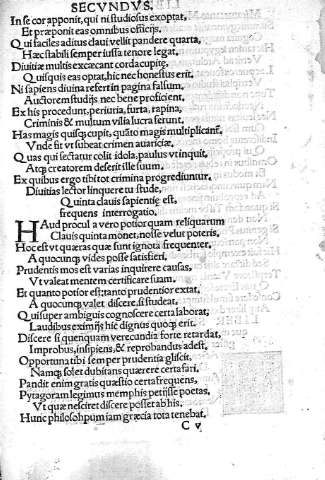 SECVNDVS.
In se cor apponit, qui ni studiosus exoptat,
Et præponit eas omnibus officijs.
Qui faciles aditus claui vellit pandere quarta,
Hæc stabili semper iussa tenore legat,
Diuitiæ multis excæcant corda cupitę,
Quisquis eas optat, hic nec honestus erit.
Ni sapiens diuina refert in pagina falsum,
Auctorem studijs nec bene proficient.
Ex his procedunt, periuria, furta, rapina,
Criminis & multum vilia lucra ferunt.
Has magis quisq; cupit, quāto magis multiplicant̃,
Vnde fit vt subeat crimen auariciæ.
Quas qui sectatur colit idola, paulus vt inquit,
Atq; creatorem deserit ille suum.
Ex quibus ergo tibi tot crimina progrediuntur,
Diuitias lector inquere tu stude,
Quinta clauis sapientię est,
frequens interrogatio.
HAud procul a vero potior quam reliquarum
Clauis quinta monet, nosse velut poteris,
Hoc est vt quæras quæ sunt ignota frequenter,
A quocunq; vides posse satisfieri,
Prudentis mos est varias inquirere causas,
Vt valeat mentem certificare suam.
Et quanto potior est; tanto prudentior extat,
A quocunq; valet discere, si studeat.
Qui super ambiguis cognoscere certa laborat,
Laudibus eximijs hic dignus quoq; erit.
Discere si quenquam verecundia forte retardat,
Improbus, insipiens, & reprobandus adest,
Opportuna tibi semper prudentia gliscit,
Namq; solet dubitans quærere certa sari.
Pandit enim gratis quæstio certa frequens,
Pytagoram legimus memphis petijsse poetas,
Vt quæ nesciret discere posset ab his.
Hunc philosohpum iam græcia tota tenebat,
C v